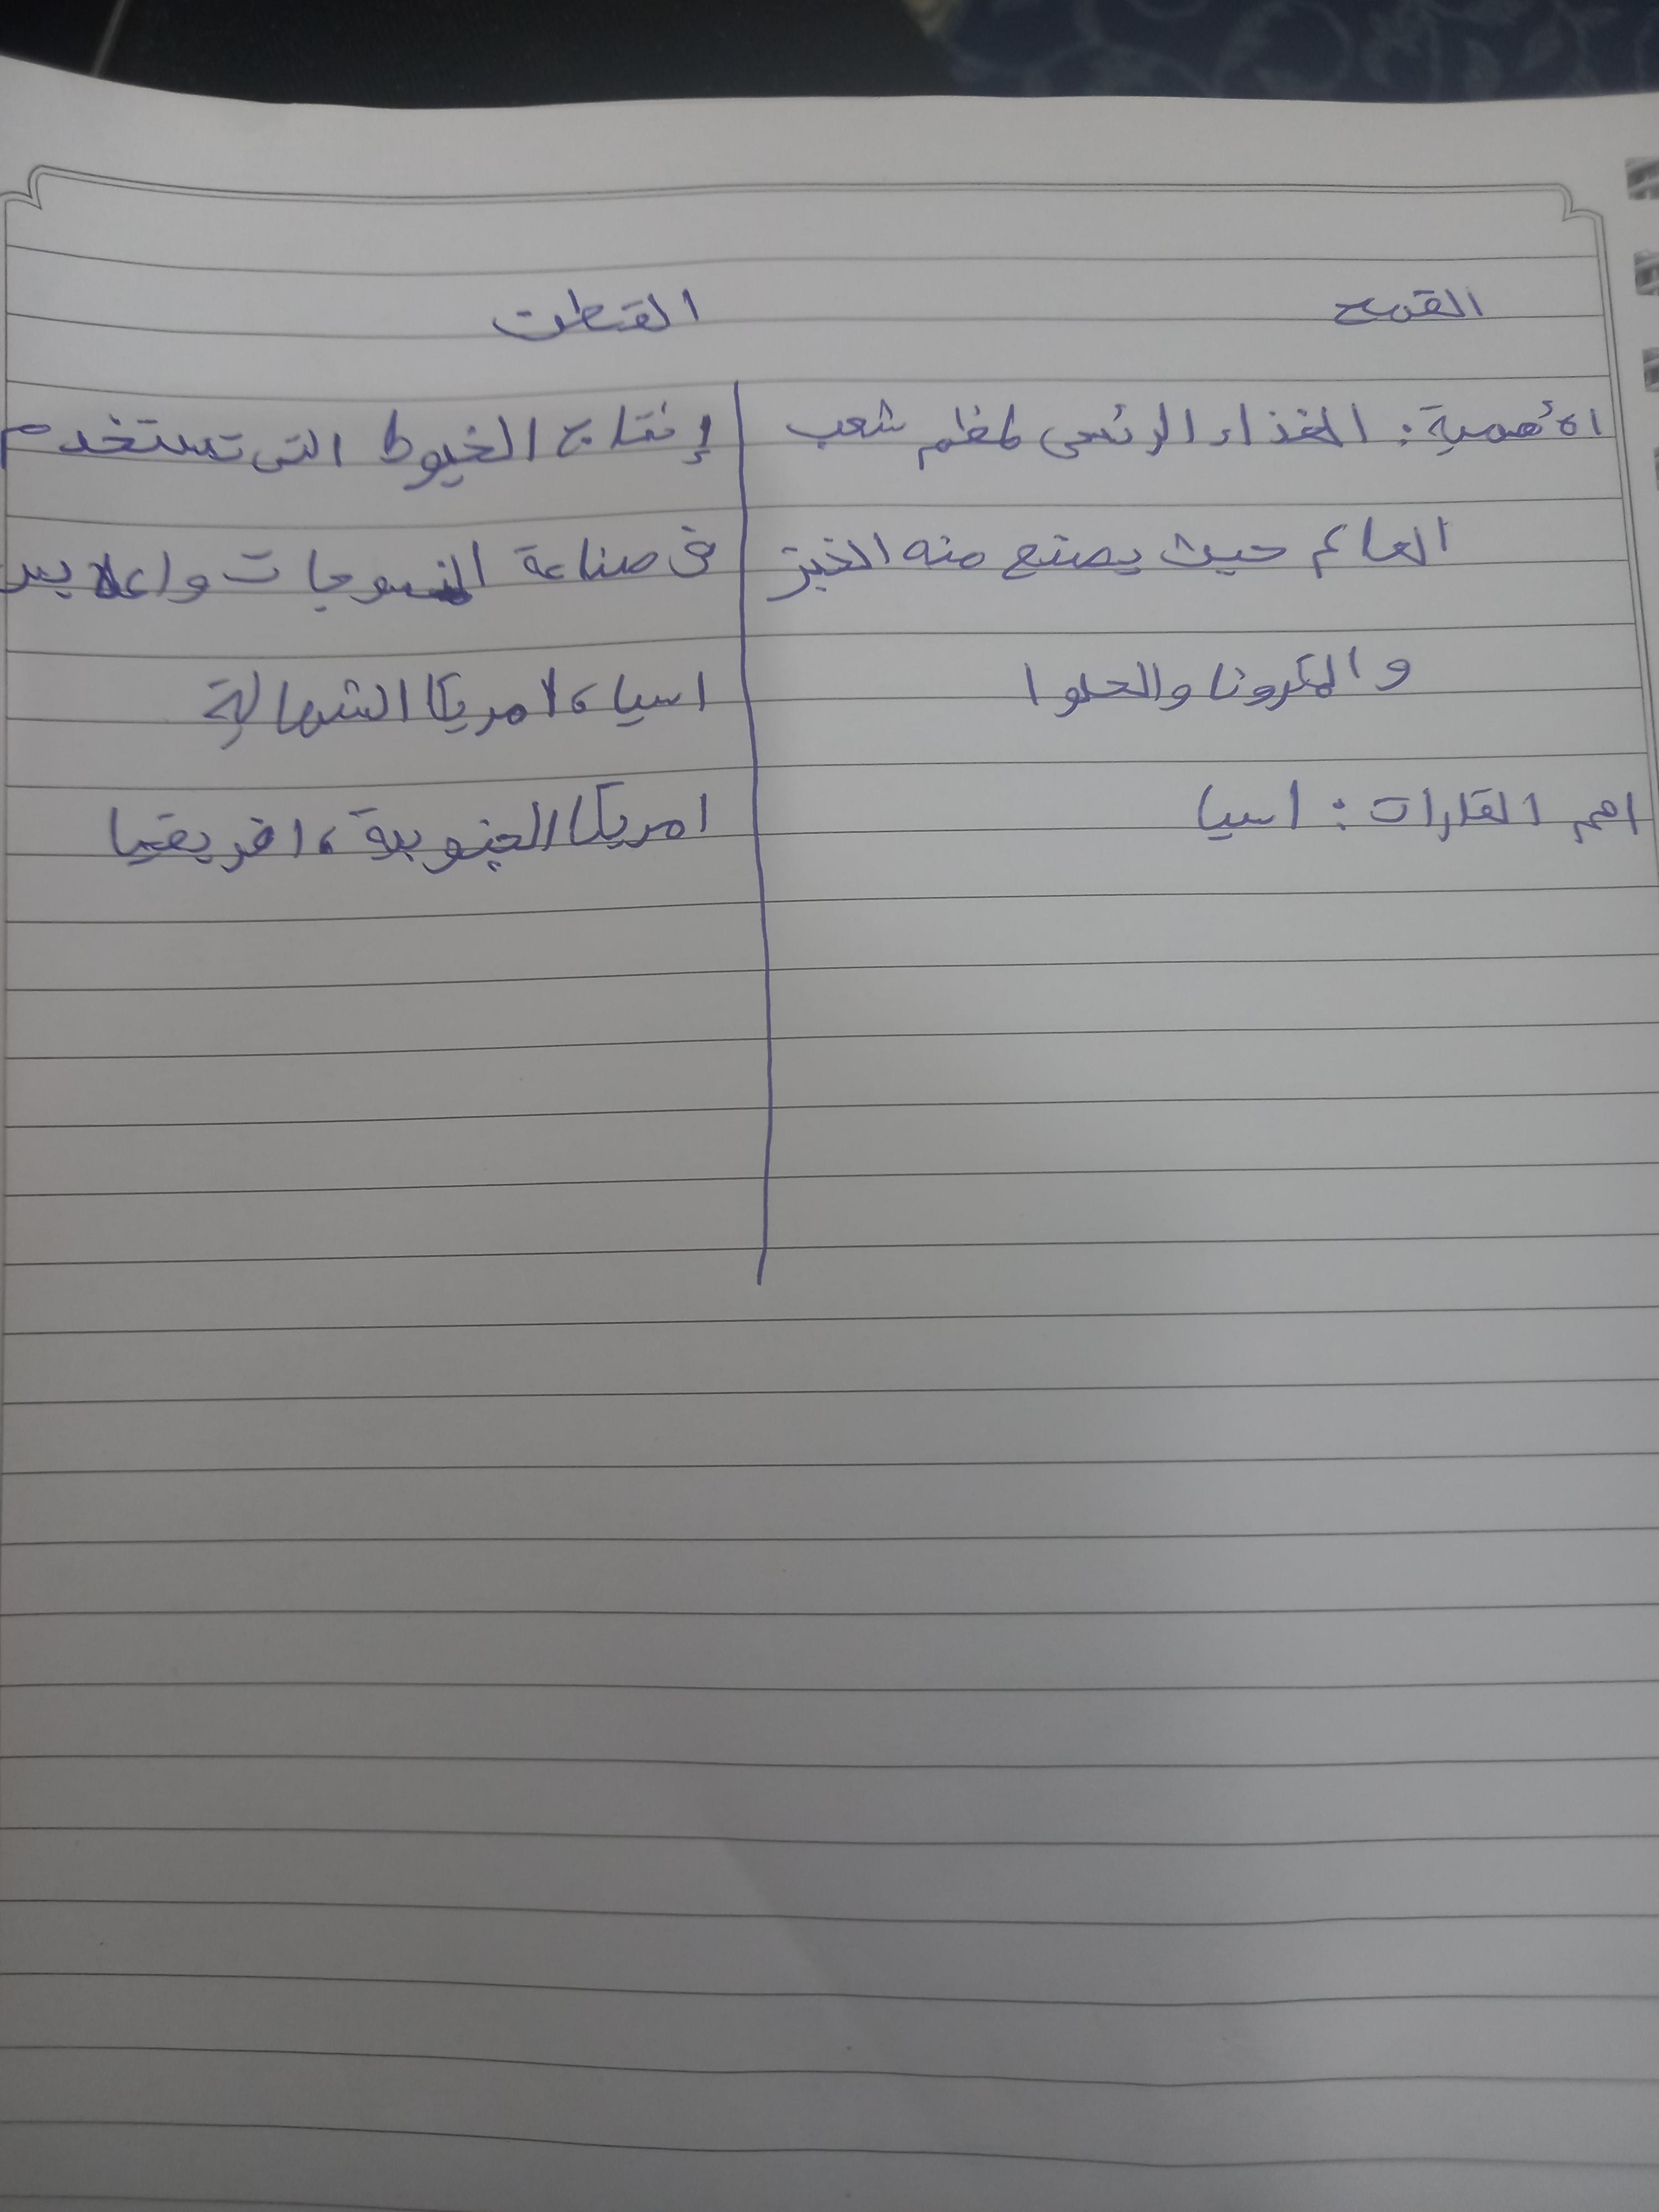 القمح
القطن
الأهمية: الغذاء الرئسى لمغلم شعب
العالم حيث يصنع منه الخبز
والمكرونا والحلوا
اهم القارات: اسيا
إنتاج الخيوط التى تستخدم
فى صناعة المنسوجات واعلابس
اسيا، امريكا الشمالية
امريكا الجنوبية، افريقيا